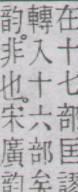 在十七部匡謬
轉入十六部矣
韵非也宋廣韵